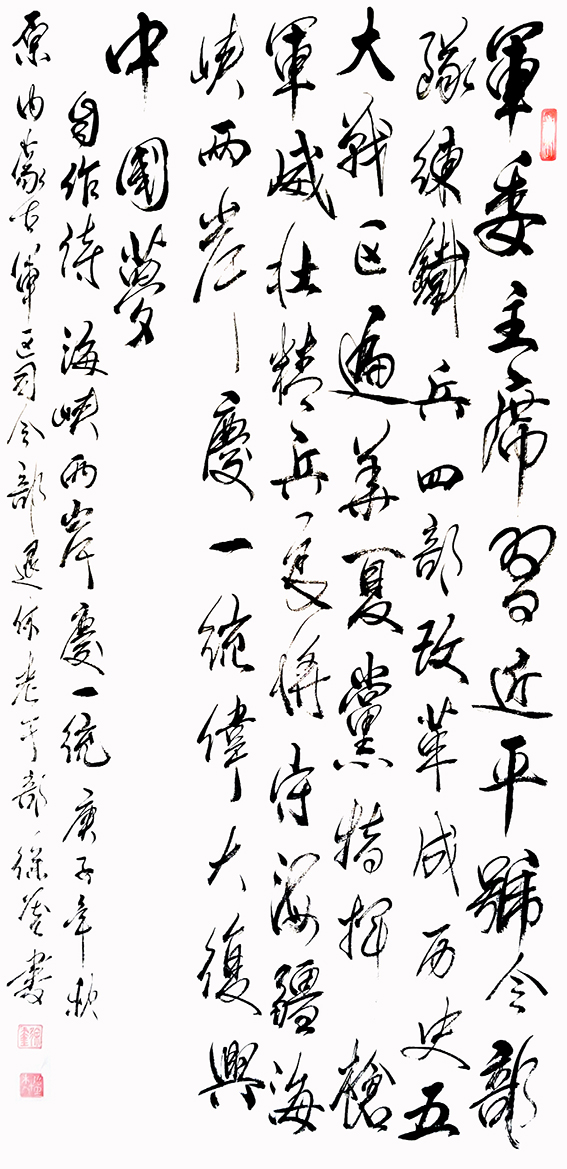 軍委主席習近平號令部
隊練鐵兵四部改革成历史五
大战区遍華夏黨指揮槍
軍威壮精兵將守海疆海
峡兩岸慶一统偉大復興
中國夢
自作诗海峡兩岸慶一统庚子年秋
原内蒙古軍区司令部退休老干部徐書